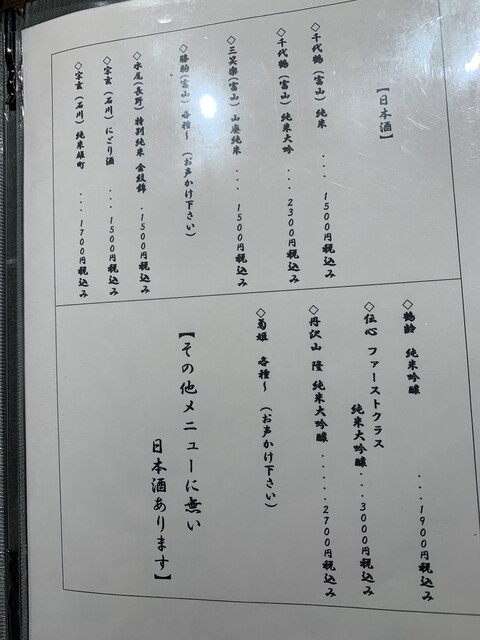 【日本酒】
◇千代鶴（富山）純米...1500円税込み
◇千代鶴（富山）純米大吟...2300円税込み
◇三笑楽（富山）山廃純米...1500円税込み
◇勝駒（富山）各種〜（お声かけ下さい）
◇水尾（長野）特別純米 金紋錦.1500円税込み
◇宗玄（石川）にごり酒...1500円税込み
◇宗玄（石川）純米雄町...1700円税込み
◇鶴齢 純米吟醸...1900円税込み
◇伝心 ファーストクラス
純米大吟醸....3000円税込み
◇丹沢山 隆 純米大吟醸....2700円税込み
◇菊姫 各種〜（お声かけ下さい）
【その他メニューに無い
日本酒あります】